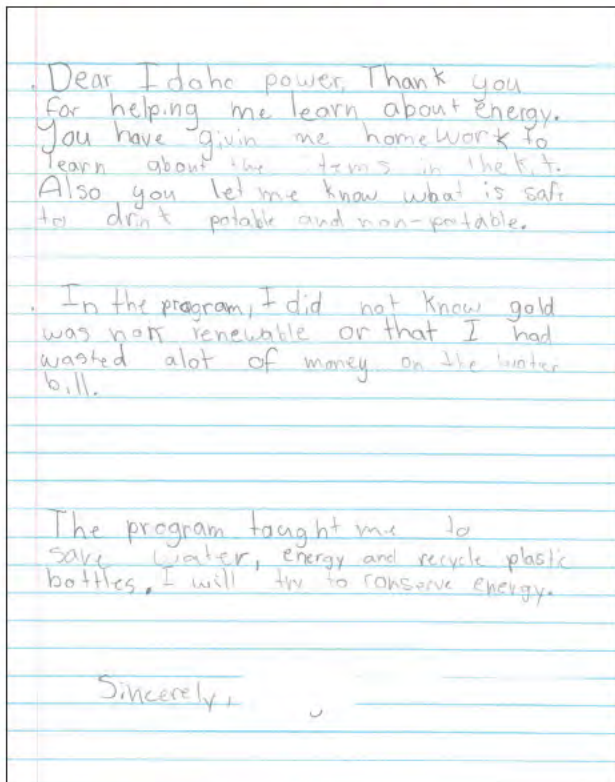 . Dear Idaho power, Thank you
for helping me learn about energy.
You have givin me homework to
learn about the items in the kit.
Also you let me know what is safe
to drink potable and non-potable.
. In the program, I did not know gold
was non renewable or that I had
wasted alot of money on the water
bill.
The program taught me to
save water, energy and recycle plastic
bottles. I will try to conserve energy.
Sincerely,